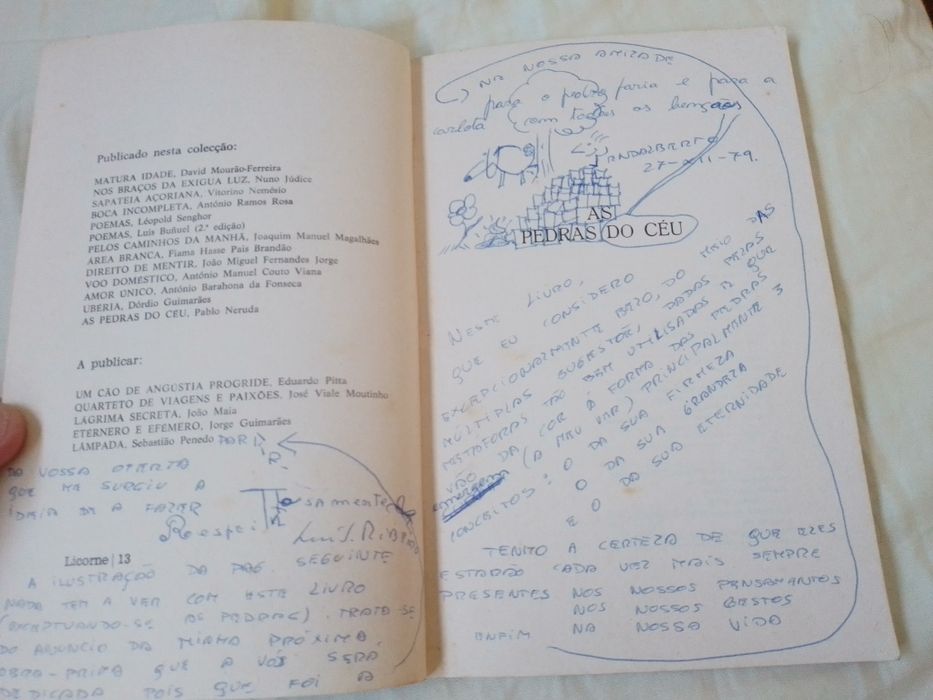 Publicado nesta colecção:
MATURA IDADE, David Mourão-Ferreira
NOS BRAÇOS DA EXIGUA LUZ, Nuno Júdice
SAPATEIA AÇORIANA, Vitorino Nemésio
BOCA INCOMPLETA, António Ramos Rosa
POEMAS, Léopold Senghor
POEMAS, Luis Buñuel (2.ª edição)
PELOS CAMINHOS DA MANHÃ, Joaquim Manuel Magalhães
ÁREA BRANCA, Fiama Hasse Pais Brandão
DIREITO DE MENTIR, João Miguel Fernandes Jorge
VOO DOMÉSTICO, António Manuel Couto Viana
AMOR ÚNICO, António Barahona da Fonseca
UBERIA, Dórdio Guimarães
AS PEDRAS DO CÉU, Pablo Neruda
A publicar:
UM CÃO DE ANGÚSTIA PROGRIDE, Eduardo Pitta
QUARTETO DE VIAGENS E PAIXÕES, José Viale Moutinho
LÁGRIMA SECRETA, João Maia
ETERNERO E EFEMERO, Jorge Guimarães
LÂMPADA, Sebastião Penedo
DA VOSSA OFERTA
QUE ME SURGIU A
IDEIA DE A FAZER
Respei T osamente
Luís J. Ribeiro
Licorne | 13
A ILUSTRAÇÃO DA PAG. SEGUINTE
NADA TEM A VER COM ESTE LIVRO
(EXCEPTUANDO-SE AS PEDRAS). TRATA-SE
DO ANUNCIO DA MINHA PRÓXIMA
OBRA-PRIMA QUE A VÓS SERÁ
DEDICADA POIS QUE FOI A
NA NOSSA AMIZADE
para o pedro faria e para a
carlota com todas as bençãos
27-XII-79.
AS
PEDRAS DO CÉU
NESTE LIVRO,
QUE EU CONSIDERO
EXCEPCIONALMENTE BELO, DO MEIO DAS
MÚLTIPLAS SUGESTÕES, DADAS PELAS
METÁFORAS TÃO BEM UTILISADAS E QUE
VÃO DA COR À FORMA DAS PEDRAS
(A MEU VER) PRINCIPALMENTE 3
CONCEITOS: O DA SUA FIRMEZA
O DA SUA GRANDEZA
E O DA SUA ETERNIDADE
TENHO A CERTEZA DE QUE ELES
ESTARÃO CADA VEZ MAIS SEMPRE
PRESENTES NOS NOSSOS PENSAMENTOS
NOS NOSSOS GESTOS
ENFIM NA NOSSA VIDA